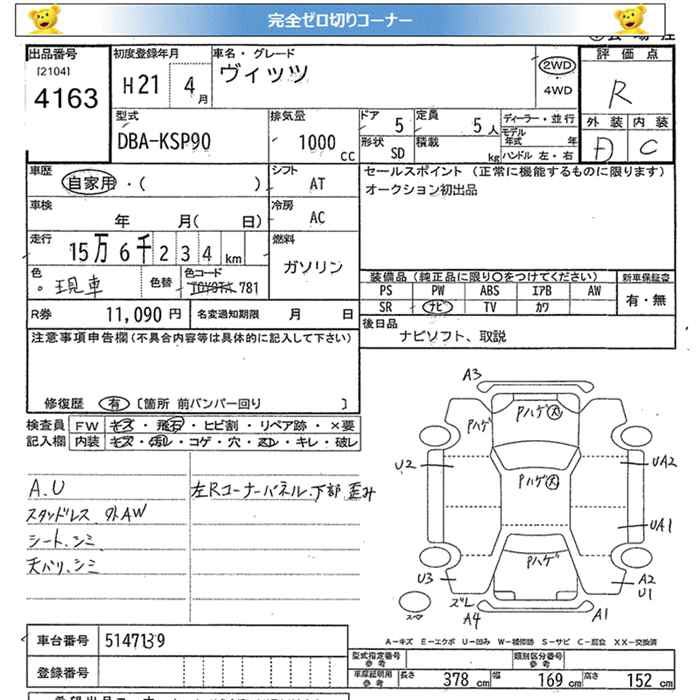 完全ゼロ切りコーナー
出品番号 初度登録年月 車名・グレード 評価点
[2104] H21 4月 ヴィッツ 2WD R
4163 4WD
型式 排気量 ドア 5 定員 5人 ディーラー・並行 外装 内装
DBA-KSP90 1000 cc 形状 SD 積載 kg モデル年式 年 D C
ハンドル 左・右
車歴 自家用・( ) シフト AT セールスポイント(正常に機能するものに限ります)
オークション初出品
車検 年 月( 日) 冷房 AC
走行 15万6千234 km 燃料 ガソリン
色 現車 色替 色コード TOYOTA 781 装備品(純正品に限り○をつけてください) 新車保証書
PS PW ABS エアB AW 有・無
SR ナビ TV カワ
R券 11,090円 名変通知期限 月 日 後日品
ナビソフト、取説
注意事項申告欄(不具合内容等は具体的に記入して下さい)
修復歴 有 [箇所 前バンパー回り ]
検査員 FW キズ・飛石・ヒビ割・リペア跡・×要
記入欄 内装 キズ・汚レ・コゲ・穴・スレ・キレ・破レ
A.U 左Rコーナーパネル.下部.歪み
スタッドレス 外AW
シート.シミ
天バリ.シミ
A3
Pハゲ Pハゲ 大
U2 Pハゲ 大 UA2
UA1
Pハゲ
U3 A2
U1
ズレ
A4 A1
A-キズ E-エクボ U-凹み W-補修跡 S-サビ C-腐食 XX-交換済
車台番号 5147139 型式指定番号 参考 類別区分番号 参考
登録番号 車庫証明用 参考 長さ 378 cm 幅 169 cm 高さ 152 cm